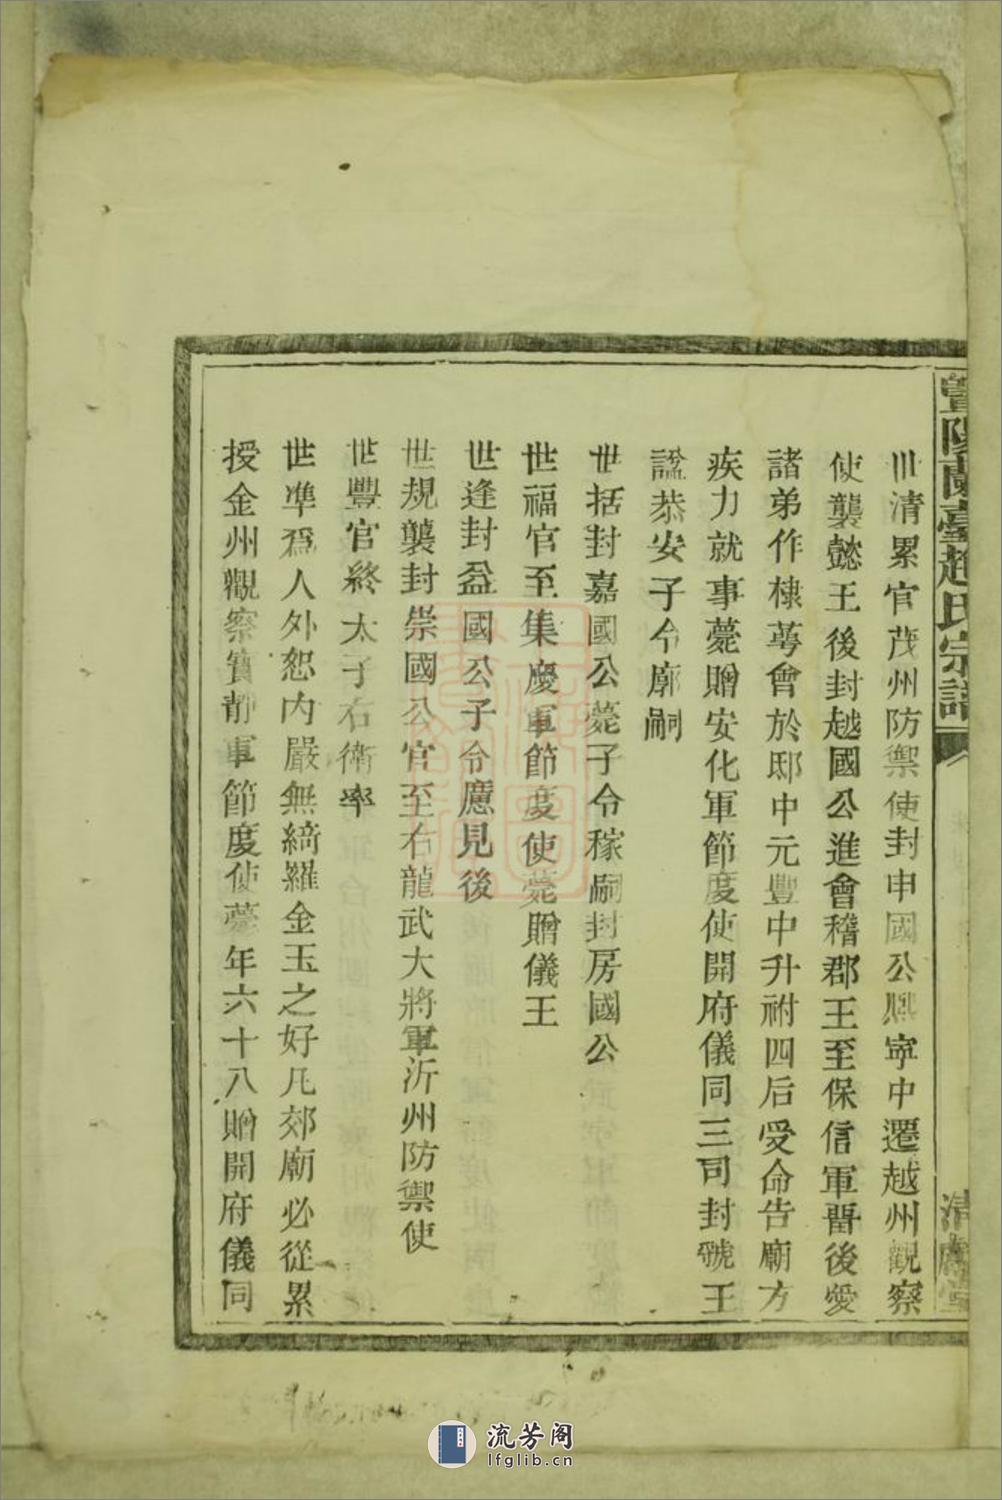 暨陽蘭臺趙氏宗譜
清 堂
世清累官茂州防禦使封申國公熙寧中遷越州觀察
使襲懿王後封越國公進會稽郡王至保信軍畱後愛
諸弟作棣萼會於邸中元豐中升祔四后受命告廟方
疾力就事薨贈安化軍節度使開府儀同三司封虢王
諡恭安子令廓嗣
世括封嘉國公薨子令稼嗣封房國公
世福官至集慶軍節度使薨贈儀王
世逢封益國公子令廌見後
世規襲封崇國公官至右龍武大將軍沂州防禦使
世豐官終太子右衛率
世凖爲人外恕內嚴無綺羅金玉之好凡郊廟必從累
授金州觀察寳靜軍節度使薨年六十八贈開府儀同
流芳阁
lfglib.cn